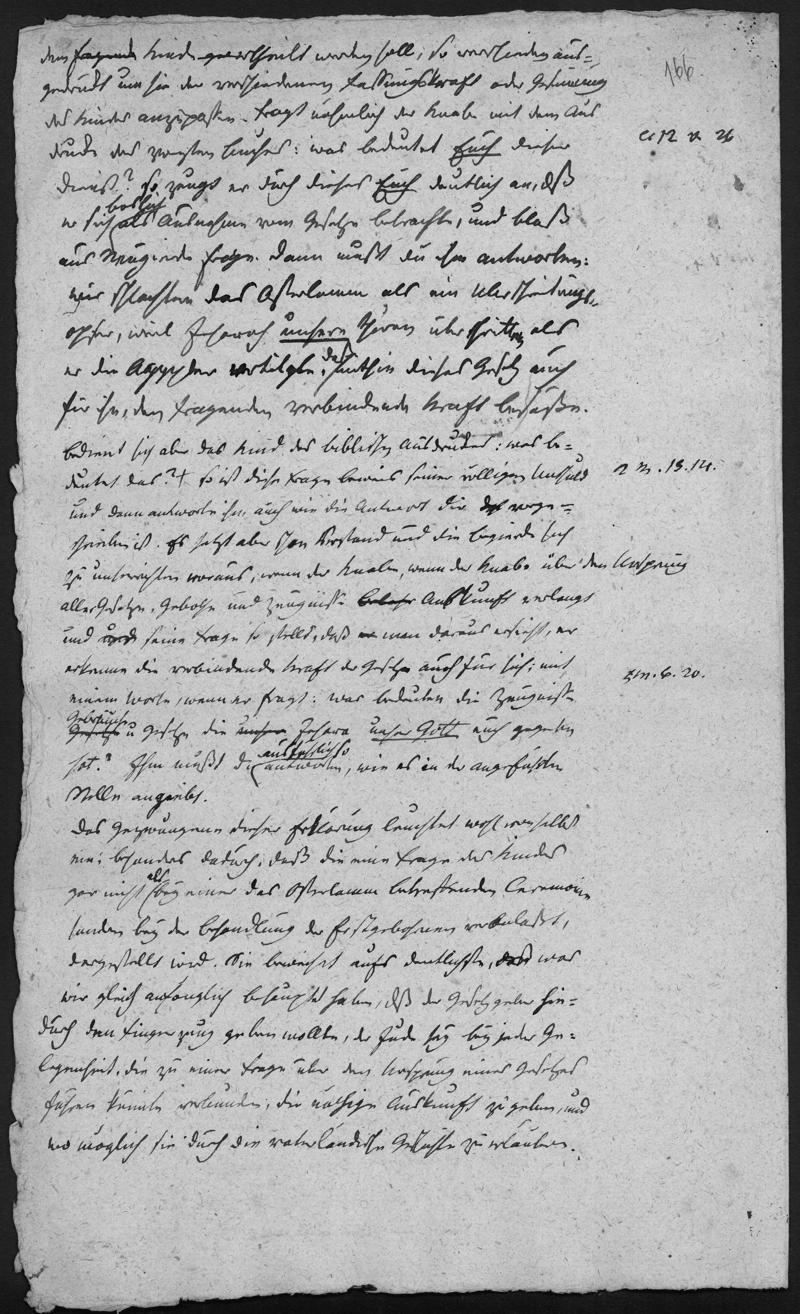 dem fragenden Kinde geertheilt werden soll; so verschieden aus=
gedrückt um sie der verschiedenen Fassungskraft oder Gesinnung
des Kindes anzupassen. Fragt nähmlich der Knabe mit dem Aus
drucke des zweyten Buches: was bedeutet Euch dieser
Dienst? so zeugt er durch dieses Euch deutlich an, daß
er sich boslich als Ausnahme vom Gesetze betrachte, und bloß
aus Neugierde frage. Dann mußt du ihm antworten:
wir schlachten das Osterlamm als ein Ueberschreitungs=
opfer, weil Jehovah unsern Thüren überschritten als
er die Aegypter vertilgte, daß mithin dieses Gesetz auch
für ihn, den Fragenden verbindende Kraft besäße.
Bedient sich aber das Kind des biblischen Ausdruckes: was be=
deutet das? so ist diese Frage beweis seiner völligen Unschuld
und dann antworte ihm auch wie die Antwort dir vorge=
schrieben ist. Es setzt aber schon Verstand und die begierde sich
zu unterrichten voraus, wenn der Knabe, wenn der Knabe über den Ursprung
aller Gesetze, Gebothe und Zeugnisse Auskunft verlangt
und seine Frage so stellt, daß man daraus ersieht, er
erkenne die verbindende Kraft der Gesetze auch für sich; mit
einem Worte, wenn er fragt: was bedeuten die Zeugnisse
Gebräuche u Gesetze die Jehova unser Gott euch gegeben
hat? Ihm mußt du ausführlich antworten, wie es in der angeführten
Stelle angiebt.
Das Gezwungene dieser Erklärung leuchtet wohl von selbst
ein; besonders dadurch, daß die eine Frage des Kindes
gar nicht als bey einer das Osterlamm betreffenden Ceremonie
sondern bey der Behandlung der Erstgebohrnen veranlaßt,
dargestellt wird. Sie beweiset aufs deutlichste, was
wir gleich anfänglich behauptet haben, daß der Gesetzgeber hie=
durch den Fingerzeug geben wollte, der Jude sey bey jeder Ge=
legenheit, die zu einer Frage über den Ursprung eines Gesetzes
führen könnte verbunden, die nöthige Auskunft zu geben, und
wo möglich sie durch die vaterländische Geschichte zu erläutern.
166
C 12 v 26
2 M. 13. 14.
5 M. 6. 20.